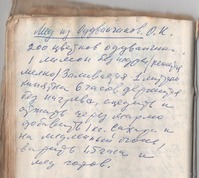 Мед из Одуванчиков. О.К.
200 цветков одуванчика
1 лимон без кожуры (режут
мелко) Заливаем 1 литром
кипятка 6 часов держать
без нагрева, сцедить и
отжать через марлю
добавить 1 кг. сахара и
на медленный огонь
варить 1,5 часа и
мед готов.